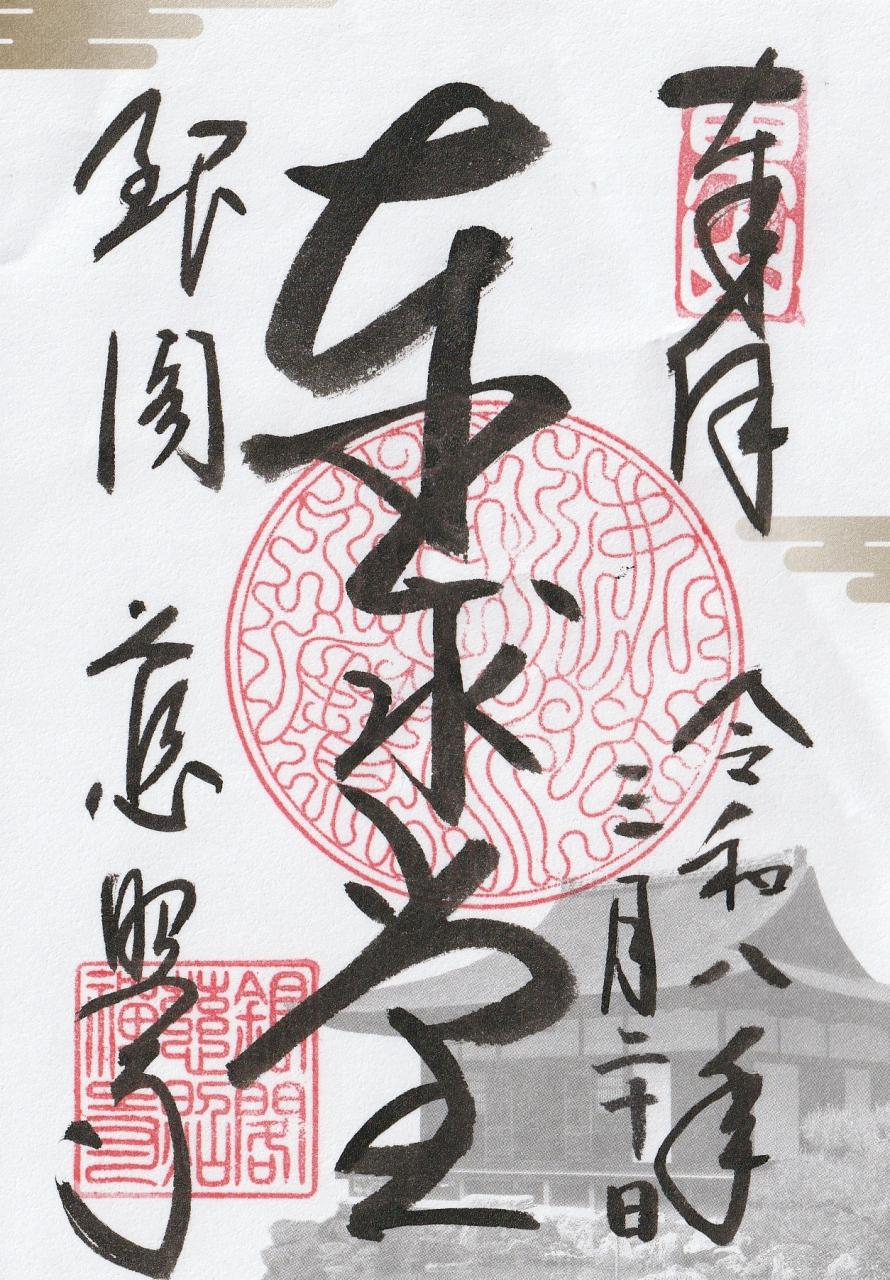 令和八年
三月二十日
東求堂
銀閣 慈照寺
銀閣
慈照
禅寺